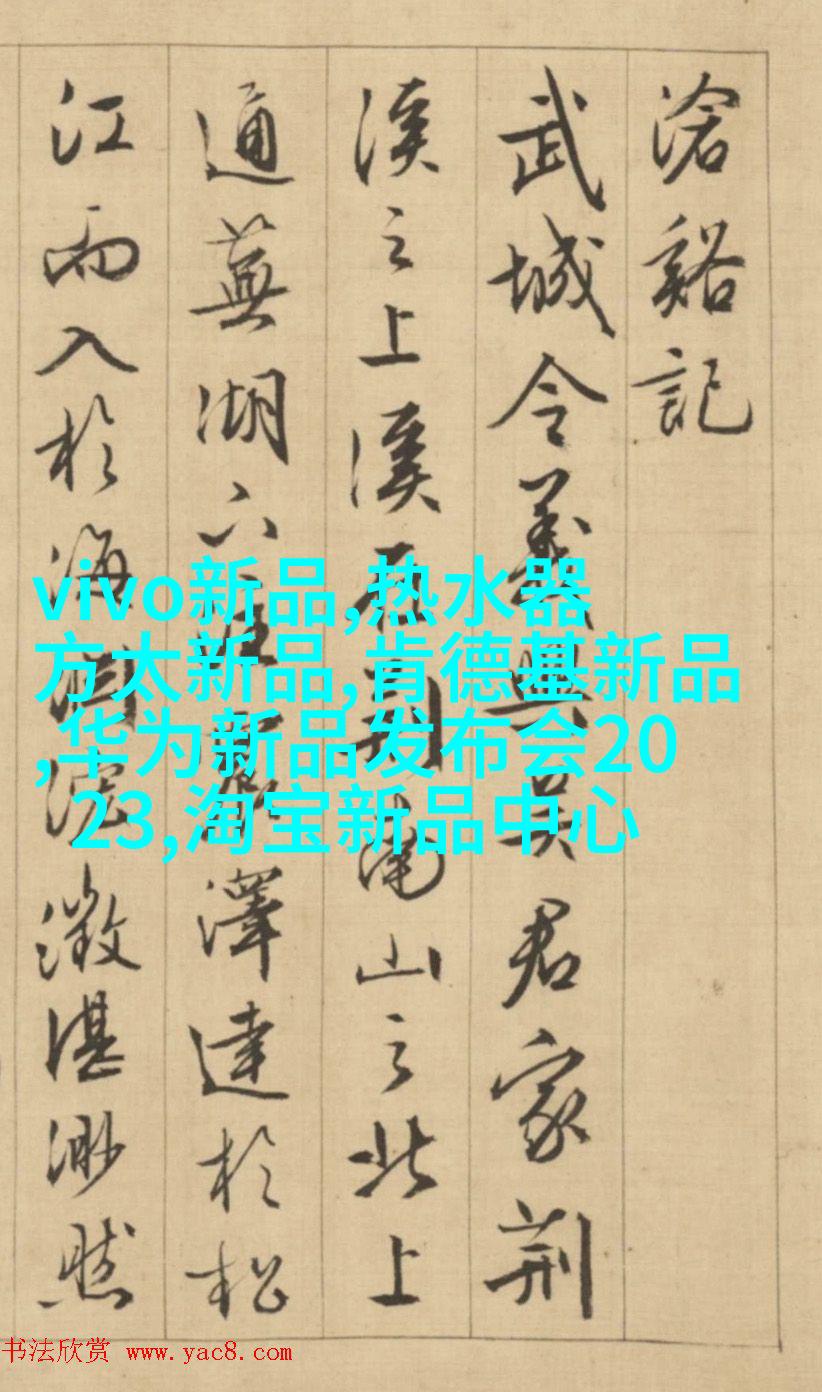 滄谿記
武城令義興吳君家荊
溪之上溪在荊南山之北上
通蕪湖下澤達於松
江而入於海澂湛渺然
vivo新品,热水器
方太新品,肯德基新品
,华为新品发布会20
23,淘宝新品中心
书法欣赏 www.yac8.com